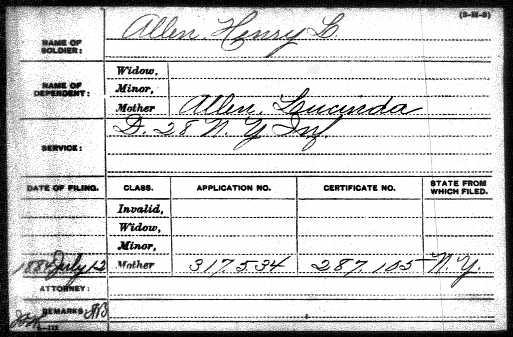 (3-M-3)
NAME OF SOLDIER: Allen, Henry L
NAME OF DEPENDENT: Widow,
Minor,
Mother Allen, Lucinda
SERVICE: D. 28 N. Y. Inf.
DATE OF FILING. CLASS. APPLICATION NO. CERTIFICATE NO. STATE FROM WHICH FILED.
Invalid,
Widow,
Minor,
July 12 Mother 317.534 287.105 N. Y.
ATTORNEY:
REMARKS: